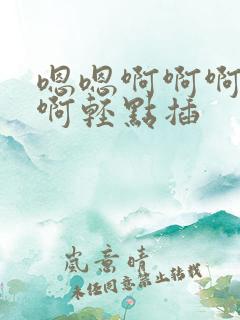 嗯嗯啊啊啊
啊輕點插
嵐意晴
未經同意禁止转載